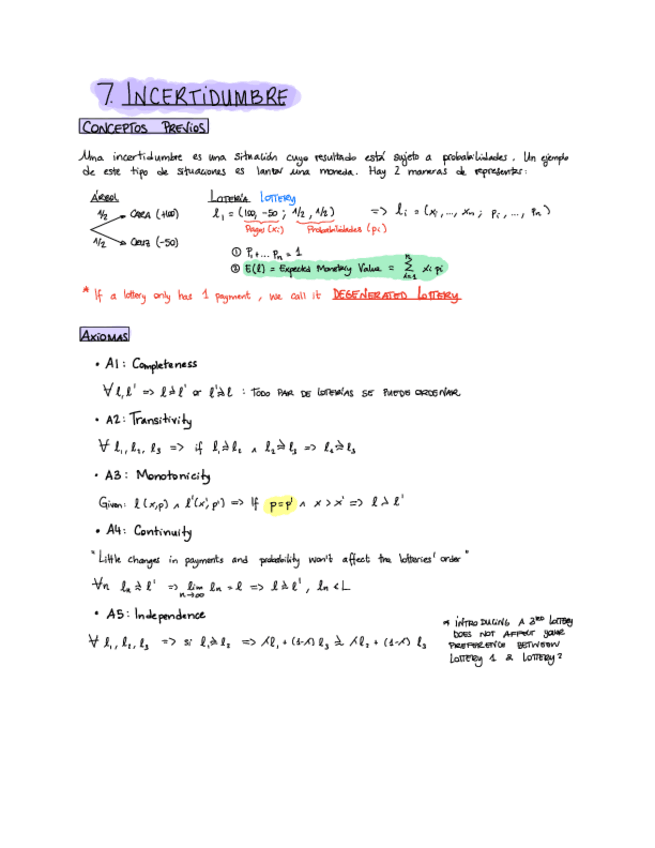 7. INCERTIDUMBRE
CONCEPTOS PREVIOS
Una incertidumbre es una situación cuyo resultado está sujeto a probabilidades. Un ejemplo
de este tipo de situaciones es lanzar una moneda. Hay 2 maneras de representar:
ÁRBOL
1/2 CARA (+100)
1/2 CRUZ (-50)
LOTERÍA LOTTERY
l₁ = (100, -50 ; 1/2, 1/2) => lᵢ = (xᵢ, ..., xₙ ; pᵢ, ..., pₙ)
Pagos (xi) Probabilidades (pi)
① P₁ + ... Pₙ = 1
② E(l) = Expected Monetary Value = Σ xᵢ pᵢ
n
i=1
* If a lottery only has 1 payment, we call it DEGENERATED LOTTERY
AXIOMAS
• A1: Completeness
∀ l, l' => l ≿ l' or l' ≿ l : TODO PAR DE LOTERÍAS SE PUEDE ORDENAR
• A2: Transitivity
∀ l₁, l₂, l₃ => if l₁ ≿ l₂ ∧ l₂ ≿ l₃ => l₁ ≿ l₃
• A3: Monotonicity
Given: l (x,p) ∧ l'(x',p') => If p=p' ∧ x > x' => l ≻ l'
• A4: Continuity
"Little changes in payments and probability won't affect the lotteries' order"
∀n lₙ ≿ l' => lim lₙ = l => l ≿ l', ln < L
n→∞
• A5: Independence
∀ l₁, l₂, l₃ => si l₁ ≿ l₂ => λl₁ + (1-λ) l₃ ≿ λl₂ + (1-λ) l₃
* INTRODUCING A 3RD LOTTERY
DOES NOT AFFECT YOUR
PREFERENCE BETWEEN
LOTTERY 1 & LOTTERY 2